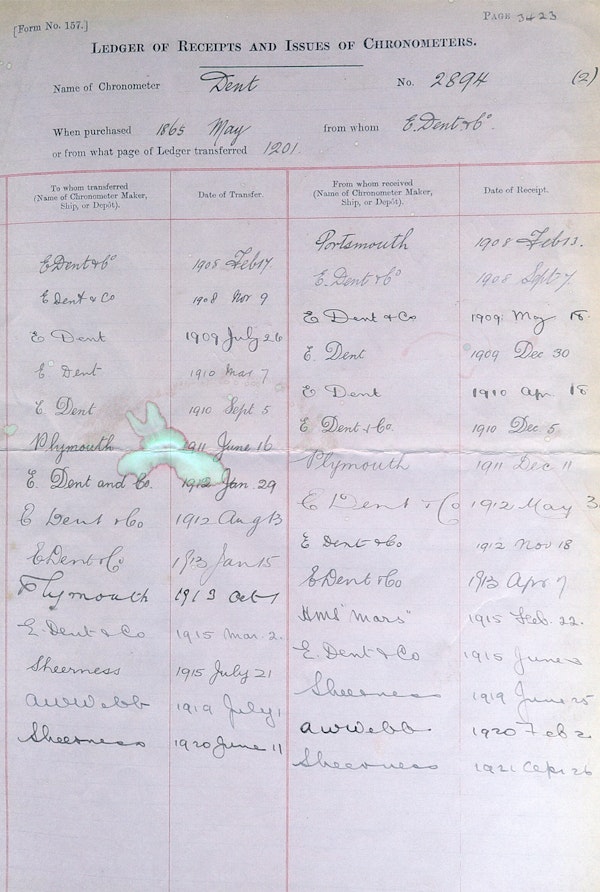 [Form No. 157.]
PAGE 3423
LEDGER OF RECEIPTS AND ISSUES OF CHRONOMETERS.
Name of Chronometer Dent No. 2894 (2)
When purchased 1865 May from whom E. Dent & Co.
or from what page of Ledger transferred 1201
To whom transferred
(Name of Chronometer Maker,
Ship, or Depôt).
Date of Transfer.
From whom received
(Name of Chronometer Maker,
Ship, or Depôt).
Date of Receipt.
Portsmouth 1908 Feb 13.
E Dent & Co 1908 Feb 17
E. Dent & Co 1908 Sept 7.
E Dent & Co 1908 Nov 9
E Dent & Co 1909 May 18
E Dent 1909 July 26
E. Dent 1909 Dec 30
E Dent 1910 Mar 7
E Dent 1910 Apr 18
E. Dent 1910 Sept 5
E Dent & Co. 1910 Dec 5
Plymouth 1911 June 16
Plymouth 1911 Dec 11
E. Dent and Co. 1912 Jan. 29
E Dent & Co 1912 May 3
E Dent & Co 1912 Aug 13
E Dent & Co 1912 Nov 18
E Dent & Co 1913 Jan 15
E Dent & Co 1913 Apr 7
Plymouth 1913 Oct 1
HMS "Mars" 1915 Feb. 22.
E. Dent & Co 1915 Mar 2.
E. Dent & Co 1915 June
Sheerness 1915 July 21
Sheerness 1919 June 25
AW Webb 1919 July 1
AW Webb 1920 Feb 2
Sheerness 1920 June 11
Sheerness 1921 Apr 26